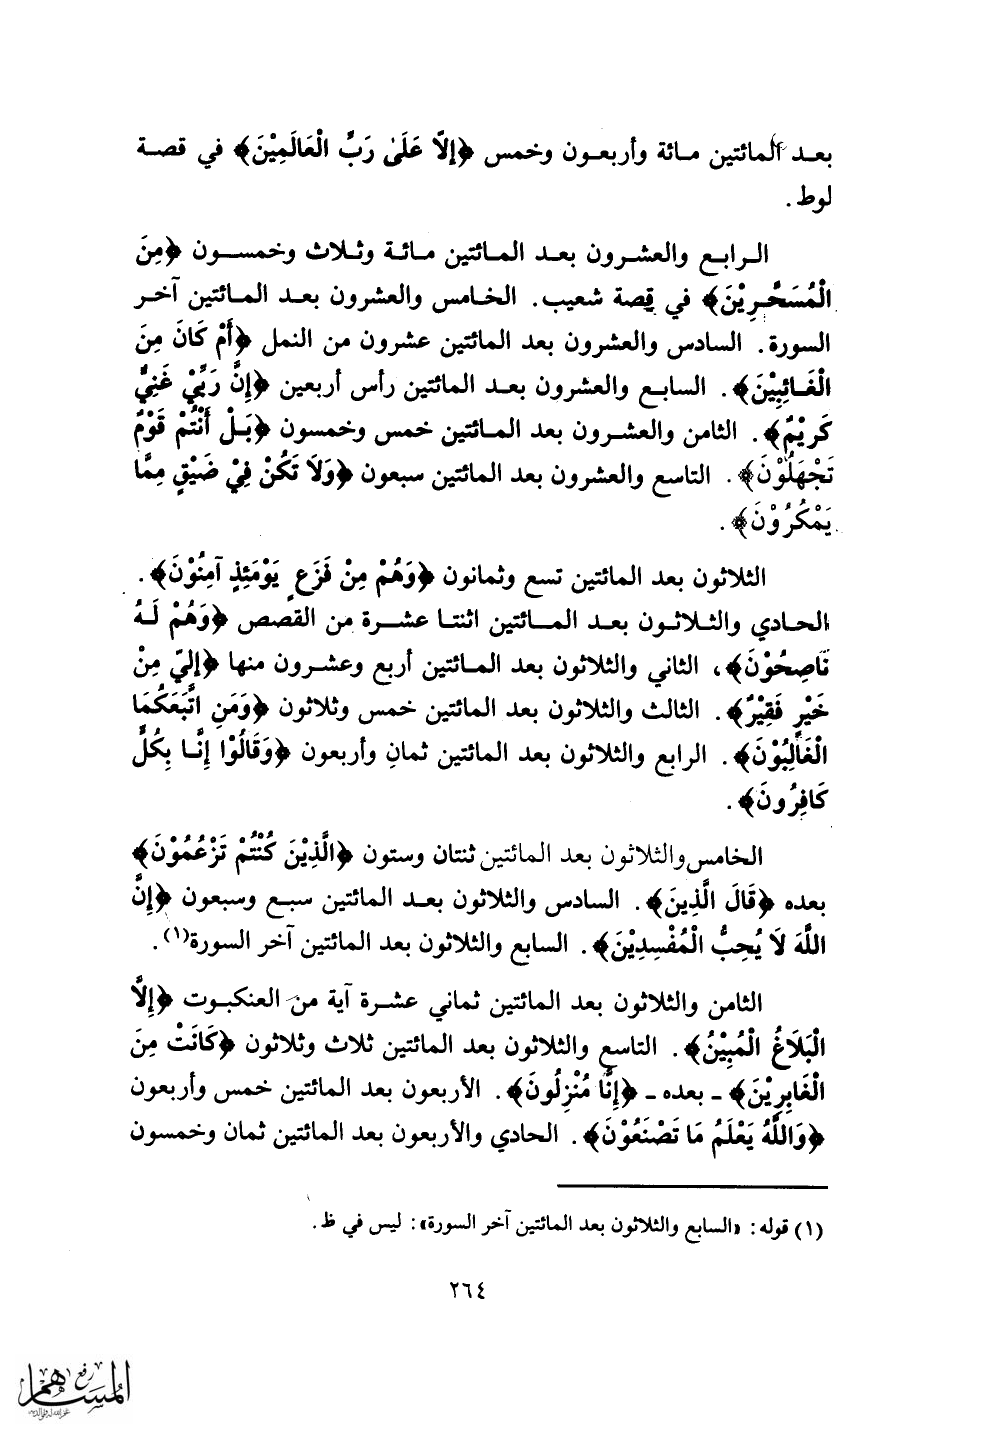 بعد المائتين مائة وأربعون وخمس ﴿إلاَّ عَلَىٰ رَبِّ الْعَالَمِيْنَ﴾ في قصة
لوط.
الرابع والعشرون بعد المائتين مائة وثلاث وخمسون ﴿مِنَ
الْمُسَحَّرِيْنَ﴾ في قصة شعيب. الخامس والعشرون بعد المائتين آخر
السورة. السادس والعشرون بعد المائتين عشرون من النمل ﴿أَمْ كَانَ مِنَ
الْغَائِبِيْنَ﴾. السابع والعشرون بعد المائتين رأس أربعين ﴿إِنَّ رَبِّيْ غَنِيٌّ
كَرِيْمٌ﴾. الثامن والعشرون بعد المائتين خمس وخمسون ﴿بَلْ أَنْتُمْ قَوْمٌ
تَجْهَلُوْنَ﴾. التاسع والعشرون بعد المائتين سبعون ﴿وَلاَ تَكُنْ فِيْ ضَيْقٍ مِمَّا
يَمْكُرُوْنَ﴾.
الثلاثون بعد المائتين تسع وثمانون ﴿وَهُمْ مِنْ فَزَعٍ يَوْمَئِذٍ آمِنُوْنَ﴾.
الحادي والثلاثون بعد المائتين اثنتا عشرة من القصص ﴿وَهُمْ لَهُ
نَاصِحُوْنَ﴾، الثاني والثلاثون بعد المائتين أربع وعشرون منها ﴿إِليّ مِنْ
خَيْرٍ فَقِيْرٌ﴾. الثالث والثلاثون بعد المائتين خمس وثلاثون ﴿وَمَنِ اتَّبَعَكُمَا
الْغَالِبُوْنَ﴾. الرابع والثلاثون بعد المائتين ثمانِ وأربعون ﴿وَقَالُوْا إِنَّا بِكُلٍّ
كَافِرُونَ﴾.
الخامس والثلاثون بعد المائتين ثنتان وستون ﴿الَّذِيْنَ كُنْتُمْ تَزْعُمُوْنَ﴾
بعده ﴿قَالَ الَّذِينَ﴾. السادس والثلاثون بعد المائتين سبع وسبعون ﴿إِنَّ
اللَّهَ لاَ يُحِبُّ الْمُفْسِدِيْنَ﴾. السابع والثلاثون بعد المائتين آخر السورة(١).
الثامن والثلاثون بعد المائتين ثماني عشرة آية من العنكبوت ﴿إِلاَّ
الْبَلاَغُ الْمُبِيْنُ﴾. التاسع والثلاثون بعد المائتين ثلاث وثلاثون ﴿كَانَتْ مِنَ
الْغَابِرِيْنَ﴾ ـ بعده ـ ﴿إِنَّا مُنْزِلُونَ﴾. الأربعون بعد المائتين خمس وأربعون
﴿وَاللَّهُ يَعْلَمُ مَا تَصْنَعُوْنَ﴾. الحادي والأربعون بعد المائتين ثمان وخمسون
(١) قوله: «السابع والثلاثون بعد المائتين آخر السورة»: ليس في ظ.
٢٦٤